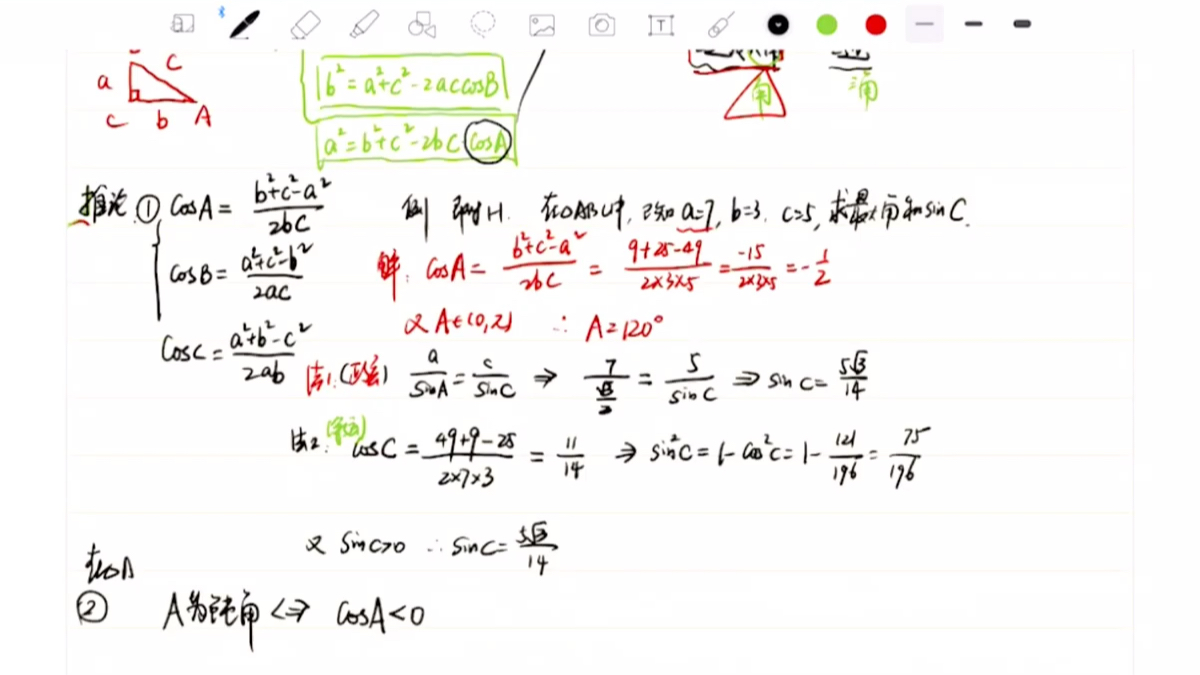 T
a c
c b A
b²=a²+c²-2accosB
a²=b²+c²-2bc cosA
角
推论 ① cosA = (b²+c²-a²)/(2bc)
cosB = (a²+c²-b²)/(2ac)
cosC = (a²+b²-c²)/(2ab)
例 在△ABC中, 已知 a=7, b=3, c=5, 求最大角和 sinC.
解: cosA = (b²+c²-a²)/(2bc) = (9+25-49)/(2×3×5) = -15/(2×3×5) = -1/2
又 A∈(0,π) ∴ A=120°
法1.(正弦) a/sinA = c/sinC ⇒ 7/(√3/2) = 5/sinC ⇒ sinC = 5√3/14
法2:(余弦) cosC = (49+9-25)/(2×7×3) = 11/14 ⇒ sin²C = 1-cos²C = 1-121/196 = 75/196
又 sinC>0 ∴ sinC = 5√3/14
在△A
② A为钝角 <=> cosA<0